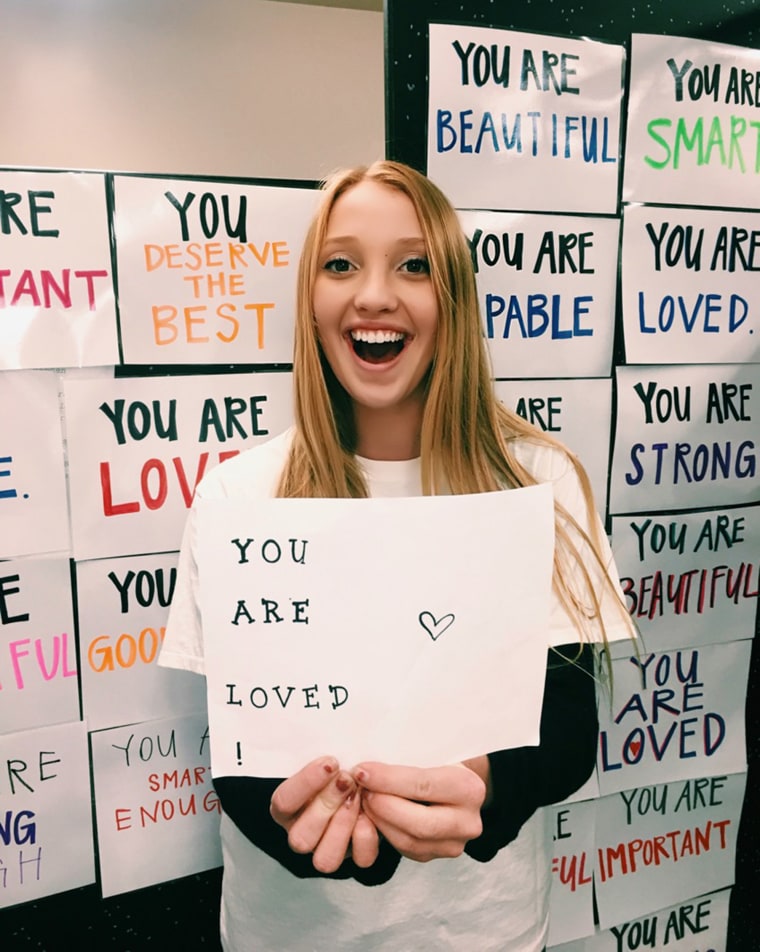 YOU ARE
BEAUTIFUL
YOU ARE
SMART
RE
TANT
YOU
DESERVE
THE
BEST
YOU ARE
PABLE
YOU ARE
LOVED.
YOU ARE
LOV
ARE
YOU ARE
STRONG
E.
YOU
ARE
LOVED
!
YOU ARE
BEAUTIFUL
E
FUL
YOU
GOO
YOU
ARE
LOVED
RE
NG
GH
YOU A
SMAR
ENOUG
E
FUL
YOU ARE
IMPORTANT
YOU ARE